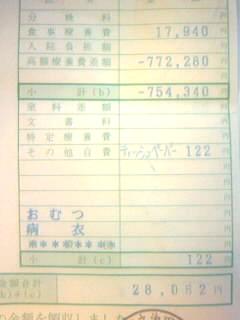 分娩料
食事療養費 17,940 円
入院負担額 円
高額療養費差額 -772,280 円
小計(b) -754,340 円
室料差額 円
文書料 円
特定療養費 円
その他自費 ティッシュペーパー 122 円
おむつ
病衣
小計(c) 122 円
金額合計
)+(c) 28,082 円
の金額を領収しました